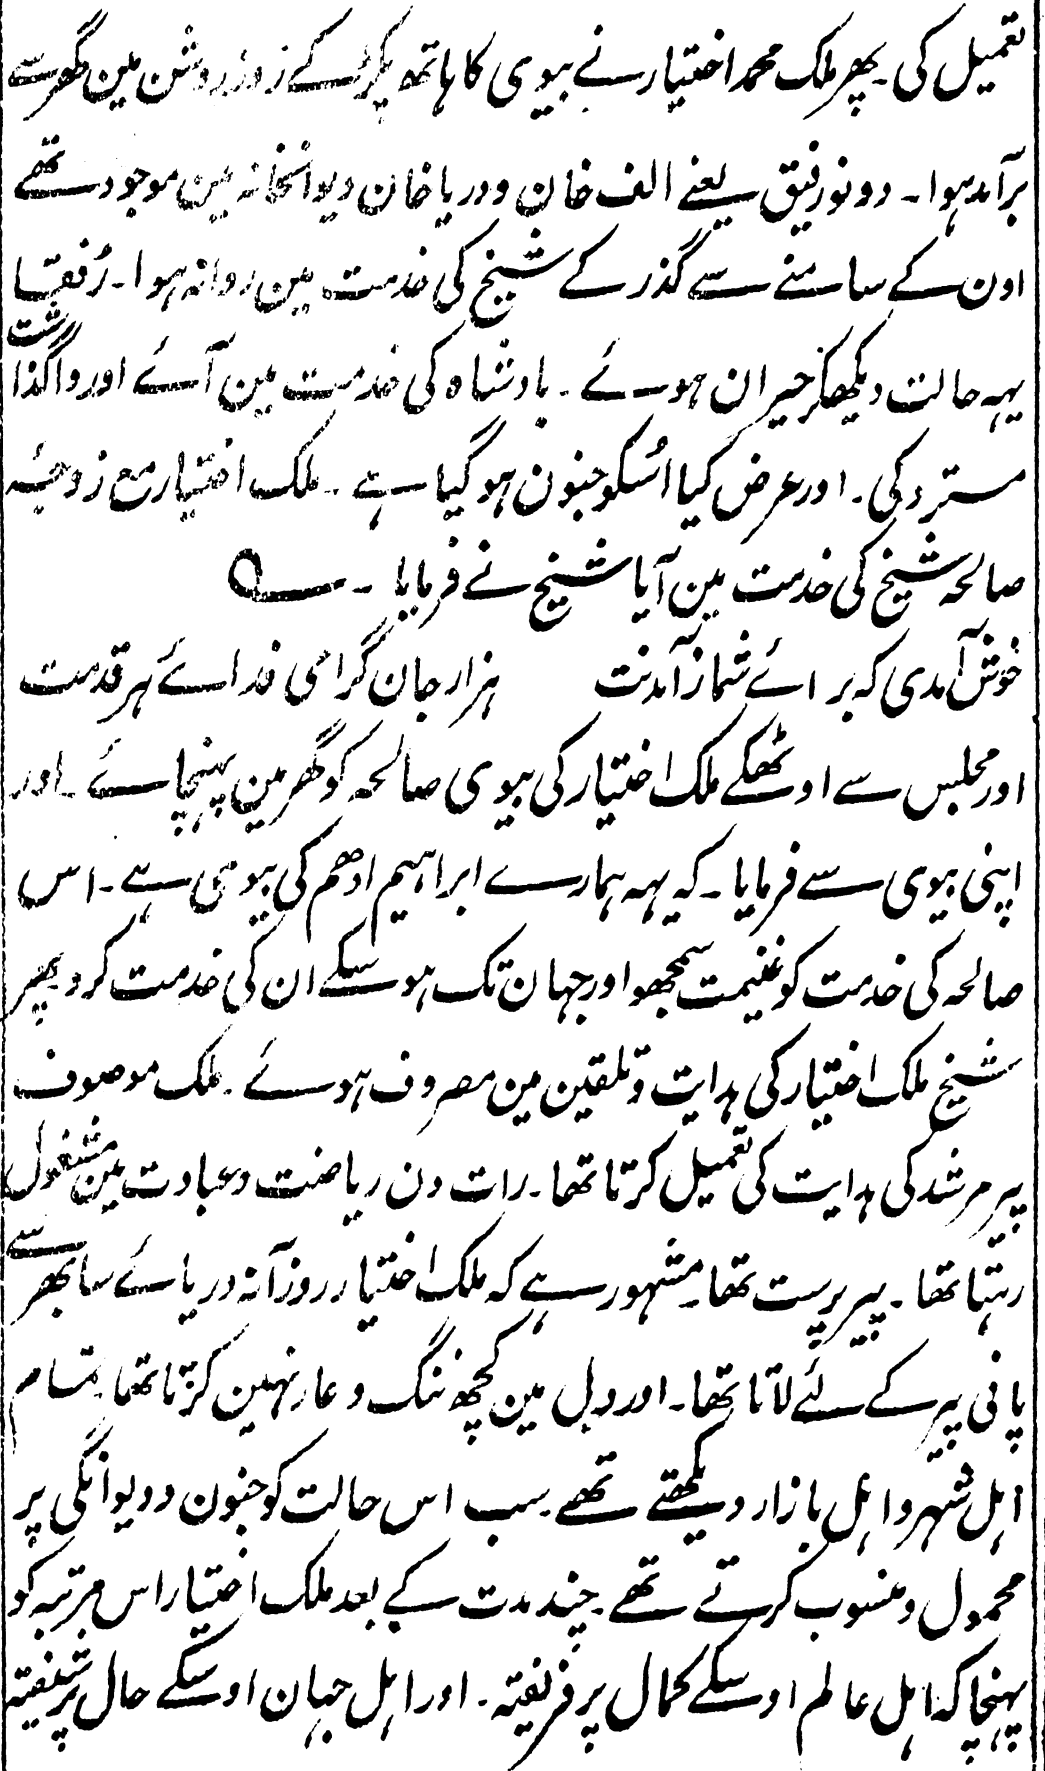 تعمیل کی۔ پھر ملک محمد اختیار نے بیوی کا ہاتھ پکڑ کے روز روشن مین گھر سے
برآمد ہوا۔ دونو رفیق یعنے الف خان و دریا خان دیوانخانہ مین موجود تھے
اون کے سامنے سے گذر کے شیخ کی خدمت مین روانہ ہوا۔ رُفقا
یہہ حالت دیکھکر حیران ہوئے۔ بادشاہ کی خدمت مین آئے اور واگذاشت
مسترد کی۔ اور عرض کیا اُسکو جنون ہو گیا ہے۔ ملک اختیار مع زوجۂ
صالحہ شیخ کی خدمت مین آیا شیخ نے فرمایا ۔
خوش آمدی کہ برائے شما ز آمدنت ہزار جان گرامی فدائے ہر قدمت
اور مجلس سے اوٹھکے ملک اختیار کی بیوی صالحہ کو گھر مین پہنچائے۔ اور
اپنی بیوی سے فرمایا۔ کہ یہہ ہمارے ابراہیم ادھم کی بیوی ہے۔ اس
صالحہ کی خدمت کو غنیمت سمجھو اور جہان تک ہو سکے ان کی خدمت کرو پھر
شیخ ملک اختیار کی ہدایت و تلقین مین مصروف ہوئے۔ ملک موصوف
پیر مرشد کی ہدایت کی تعمیل کرتا تھا۔ رات دن ریاضت و عبادت مین مشغول
رہتا تھا۔ پیر پرست تھا۔ مشہور ہے کہ ملک اختیار روزآنہ دریائے سابھر سے
پانی پیر کے لئے لاتا تھا۔ اور دل مین کچھ ننگ و عار نہین کرتا تھا۔ تمام
اہل شہر و اہل بازار دیکھتے تھے۔ سب اس حالت کو جنون و دیوانگی پر
محمول و منسوب کرتے تھے۔ چند مدت کے بعد ملک اختیار اس مرتبہ کو
پہنچا کہ اہل عالم اوسکے کمال پر فریفتہ۔ اور اہل جہان اوسکے حال پر شیفتہ